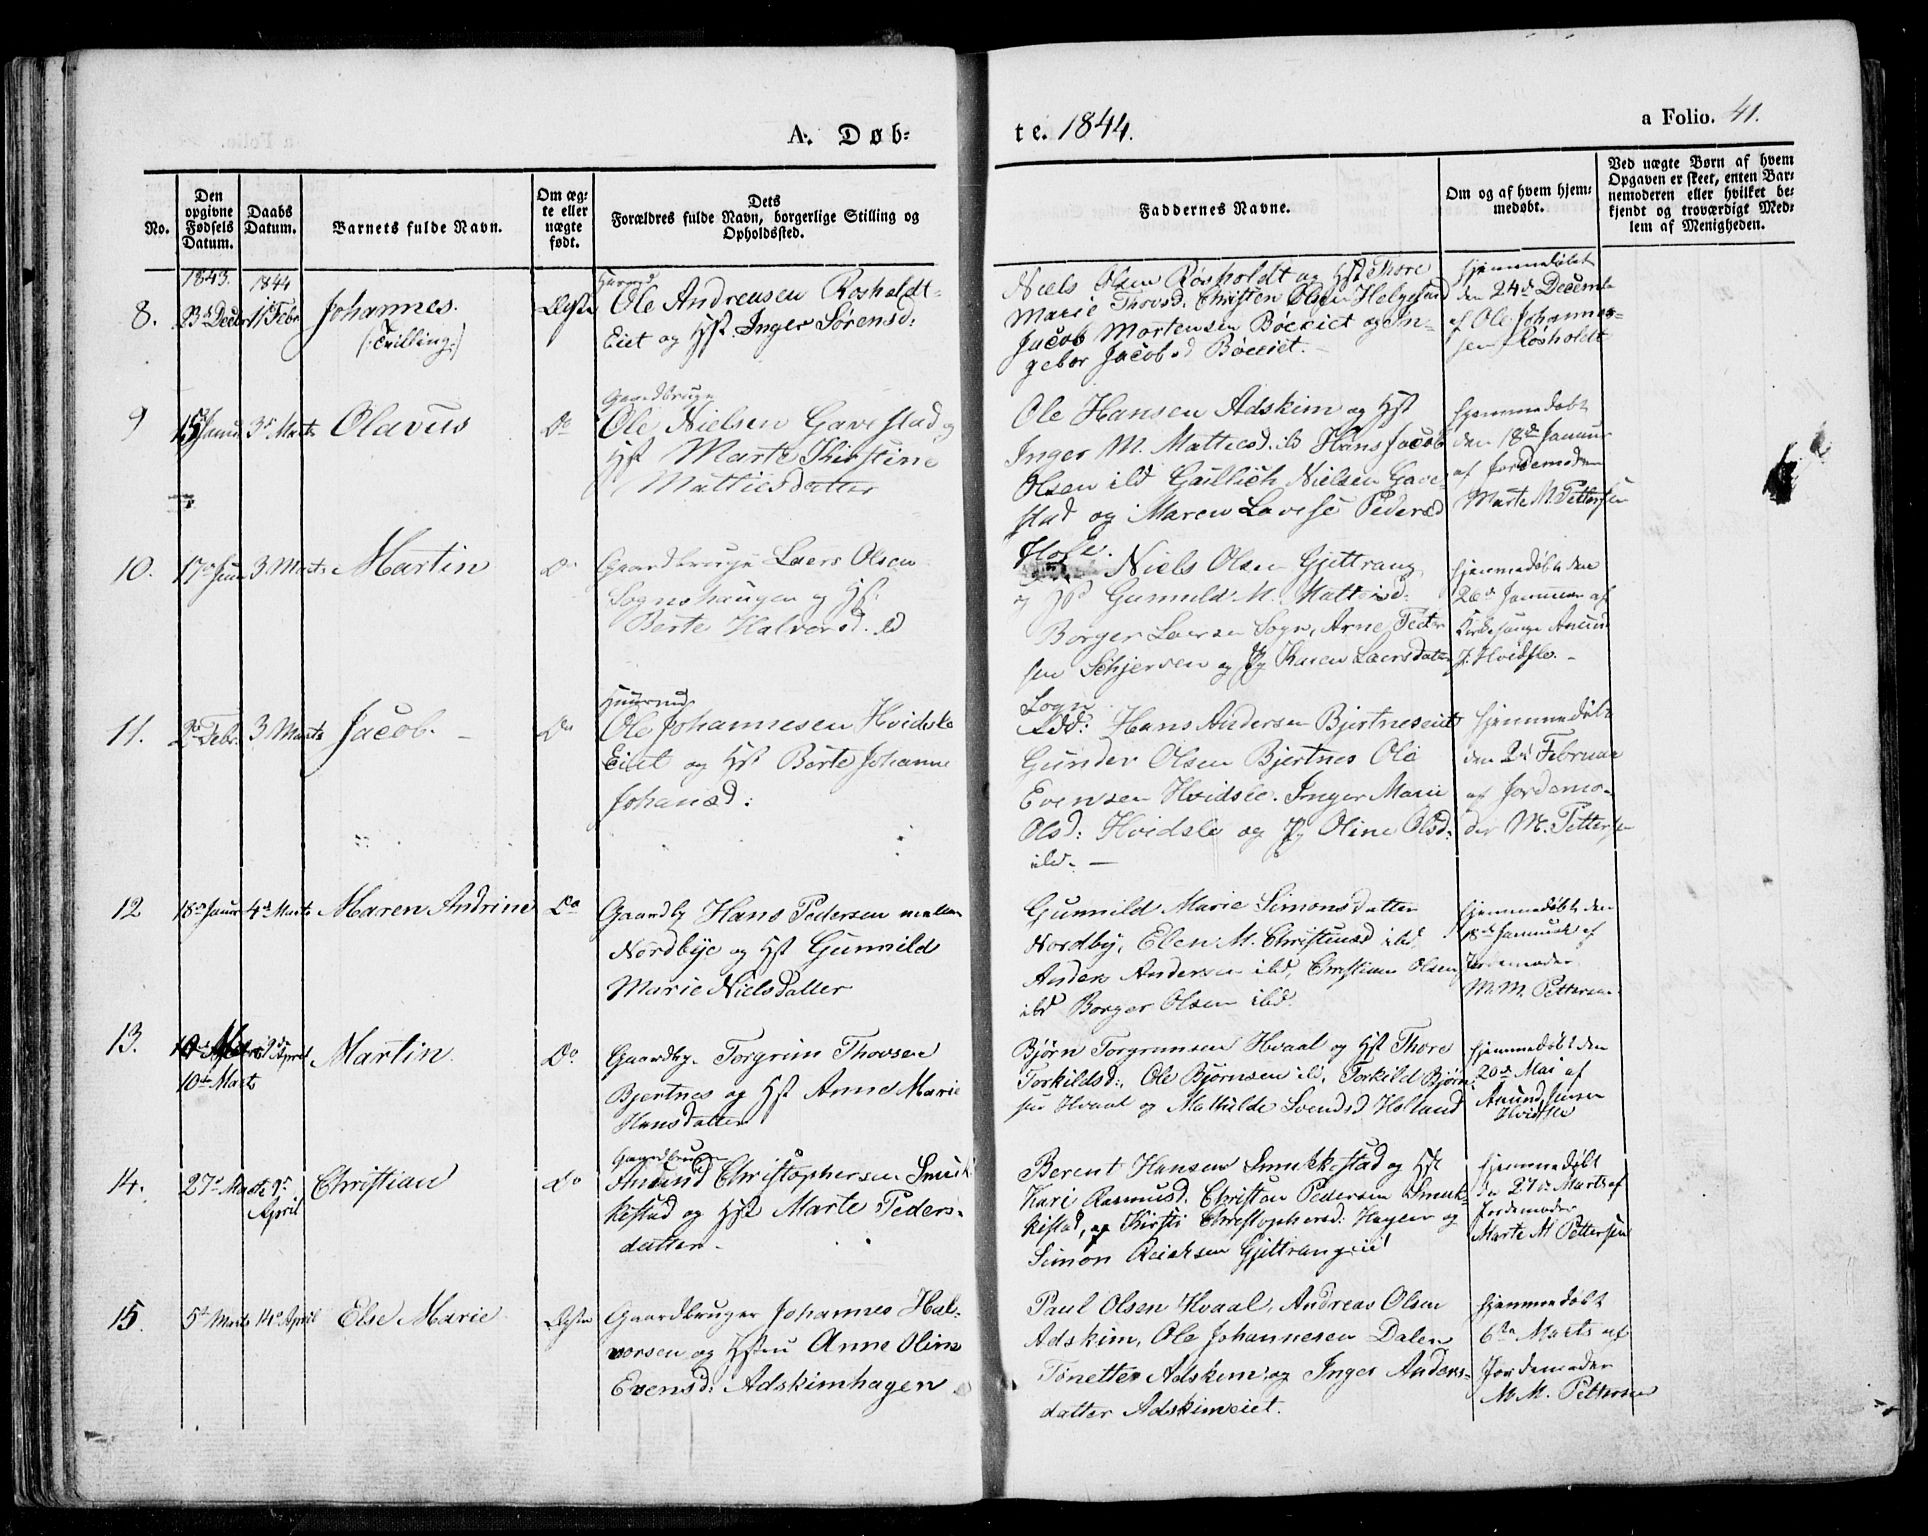 A. Døb-
te. 1844.
a Folio. 41.
No.
Den opgivne Fødsels Datum.
Daabs Datum.
Barnets fulde Navn.
Om æg-
te eller
nægte
født.
Dets
Forældres fulde Navn, borgerlige Stilling og
Opholdssted.
Faddernes Navne.
Om og af hvem hjem-
medøbt.
Ved nægte Børn af hvem
Opgaven er skeet, enten Bar-
nemoderen eller hvilket be-
kjendt og troværdigt Med-
lem af Menigheden.
1843.
1844
8.
23de Decbr
11 Febr
Johannes.
(:Tvilling:)
Ægte
Huusmd
Ole Andreasen Rosholdt-
Eiet og Hst. Inger Sørensd:
Niels Olsen Røsholdt og Hst Thore
Marie Thovsd: Christen Olsen Helgestad
Jacob Mortensen Böeeiet og In-
gebor Jacobsd Böeeiet.
hjemmedøbt
den 24de Decembr
af Ole Johanne-
sen Rösholdt
9
15 Januar
3de Marts
Olavus
Do
Gaardbruger
Ole Nielsen Gavestad og
Hst Marte Kirstine
Mattiesdatter
Ole Hansen Adskim og Hst
Inger M. Mattiesd. ib Hans Jacob
Olsen ibd Gullich Nielsen Gave-
stad og Maren Lovise Pedersd
Hole.
hjemmedøbt
den 18de Januar
af Jordemoder
Marte M. Pettersen
10.
17de Jan
3 Marts
Martin
Do
Gaardbruger Laers Olsen
Sognshaugen og Hst
Berte Halvorsd. ibd
Niels Olsen Gjettrang
og Hst Gunnild M. Mattiesd:
Borger Laersen Sogn, Arne Peter
sen Schjersen og Pg Karen Laersdatter
Sogn
hjemmedøbt den
26de Januar af
Kirkesanger Anun
J. Hvidsle. -
11.
2de Febr.
3 Marts
Jacob. -
Do
Huusmd
Ole Johannesen Hvidsle
Eiet og Hst Berte Johanne
Johansd:
Fdd: Hans Andersen Bjertneseiet
Gunder Olsen Bjertnes Ole
Evensen Hvidsle. Inger Marie
Olsd: Hvidsle og Pg Oline Olsd:
ibd. -
hjemmedøbt
den 2de Februar
af Jordemo-
der M. Pettersen
12
18de Januar
4de Marts
Maren Andrine
Do
Gaardbr Hans Pedersen mellem
Nordbye og Hst Gunnild
Marie Nielsdatter
Gunnild Marie Simonsdatter
Nordby, Elen M. Christensd ibd,
Anders Andersen ibd, Christian Olsen
ibd Borger Olsen ibd.
hjemmedøbt den
18de Januar af
Jordemoder
M. M. Pettersen
13.
10de Marts
9de April
Martin.
Do
Gaardbr. Torgrim Thovsen
Bjertnes og Hst Anne Marie
Hansdatter
Bjørn Torgrimsen Hvaal og Hst Thore
Torkildsd:, Ole Bjørnsen ib, Torkild Bjørn-
sen Hvaal og Mathilde Svendsd Holtand
hjemmedøbt den
20de Mai af
Anund Jensen
Hvidsle
14.
27de Marts
9de April
Christian
Do
Gaardbruger
Anund Christophersen Smuk-
kestad og Hst Marte Peders-
datter.
Berent Hansen Smukkestad og Hst
Kari Rasmusd. Christen Pedersen Smuk-
kestad, og Kirsti Christophersd: Hagen og
Simon Gjettrangeie
hjemmedøbt
den 27de Marts af
Jordemoder
Marte M Pettersen
15.
5te Marts
14de April
Else Marie
Ægte
Gaardbruger Johannes Hal-
vorsen og Hstru Anne Oline
Evensd: Adskimhagen
Paul Olsen Hvaal, Andreas Olsen
Adskim, Ole Johannesen Dalen
Tønetter Adskim og Inger Anders-
datter Adskimeiet.
hjemmedøbt
6te Marts af
Jordemoder
M M. Pettersen